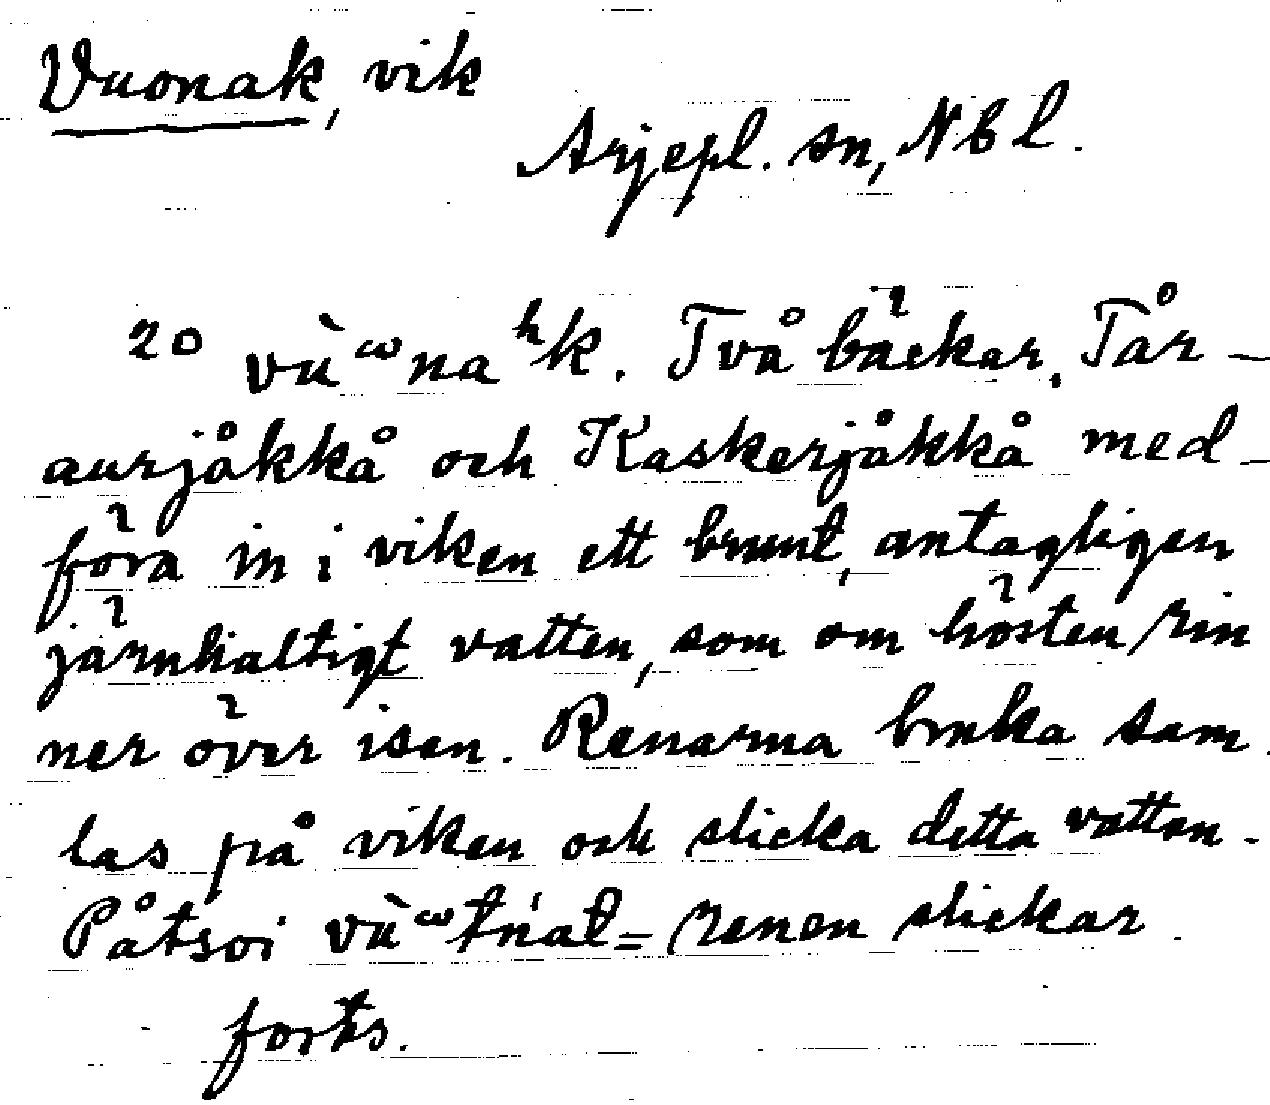 Vuonak, vik
Arjepl. sn, Nbl.
20 vù͏ᵚnaʰk. Två bäckar, Tår-
aurjåkkå och Kaskerjåkkå med-
föra in i viken ett brunt, antagligen
järnhaltigt vatten, som om hösten rin
ner över isen. Renarna bruka sam
las på viken och slicka detta vatten.
Påtsoi = renen slickar
forts.